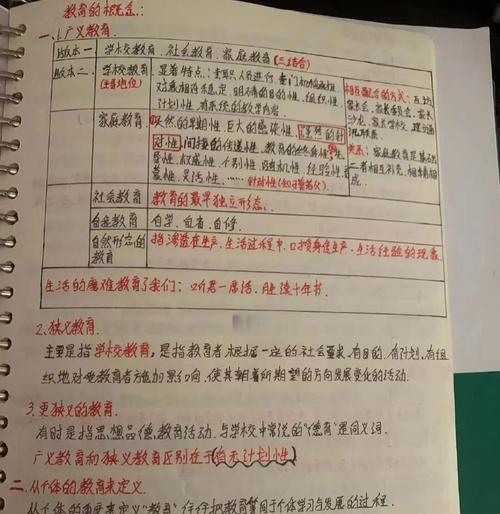 教育的概念:
一、1.广义教育.
版本一 学校教育、社会教育、家庭教育(三结合)
版本二 学校教育(主导地位)
显著特点:
对象相对稳定、明确的目的性、组织性
计划性、有系统的教学内容
相互配合的方式:
家长会、家长委员会、家长
沙龙、家长学校、
家庭教育
天然的早期性、巨大的感染性、强烈的针
对性、间接的传递性、教育的终身性
权威性、个别性、随机性、经验性
灵活性、…… 针对性(知子莫若父)
关系:家庭教育是基础
二者相互补充、相辅相
成.
社会教育 教育的最早独立形态.
自我教育 自学、自省、自修.
自然形态的教育 指渗透在生产、生活过程中,口授身传生产、生活经验的现象
生活的磨难教育了我们:听君一席话,胜读十年书.
2.狭义教育.
主要是指学校教育,是指教育者根据一定的社会要求,有目的、有计划、有组
织地对受教育者施加影响,使其朝着所期望的方向发展变化的活动.
3.更狭义的教育.
有时是指思想品德教育活动,与学校中常说的“德育”是同义词.
广义教育和狭义教育区别在于(有无计划性)
二、从个体的教育来定义.
从个体的角度来定义“教育”,往往把教育等同于个体学习与发展的过程.